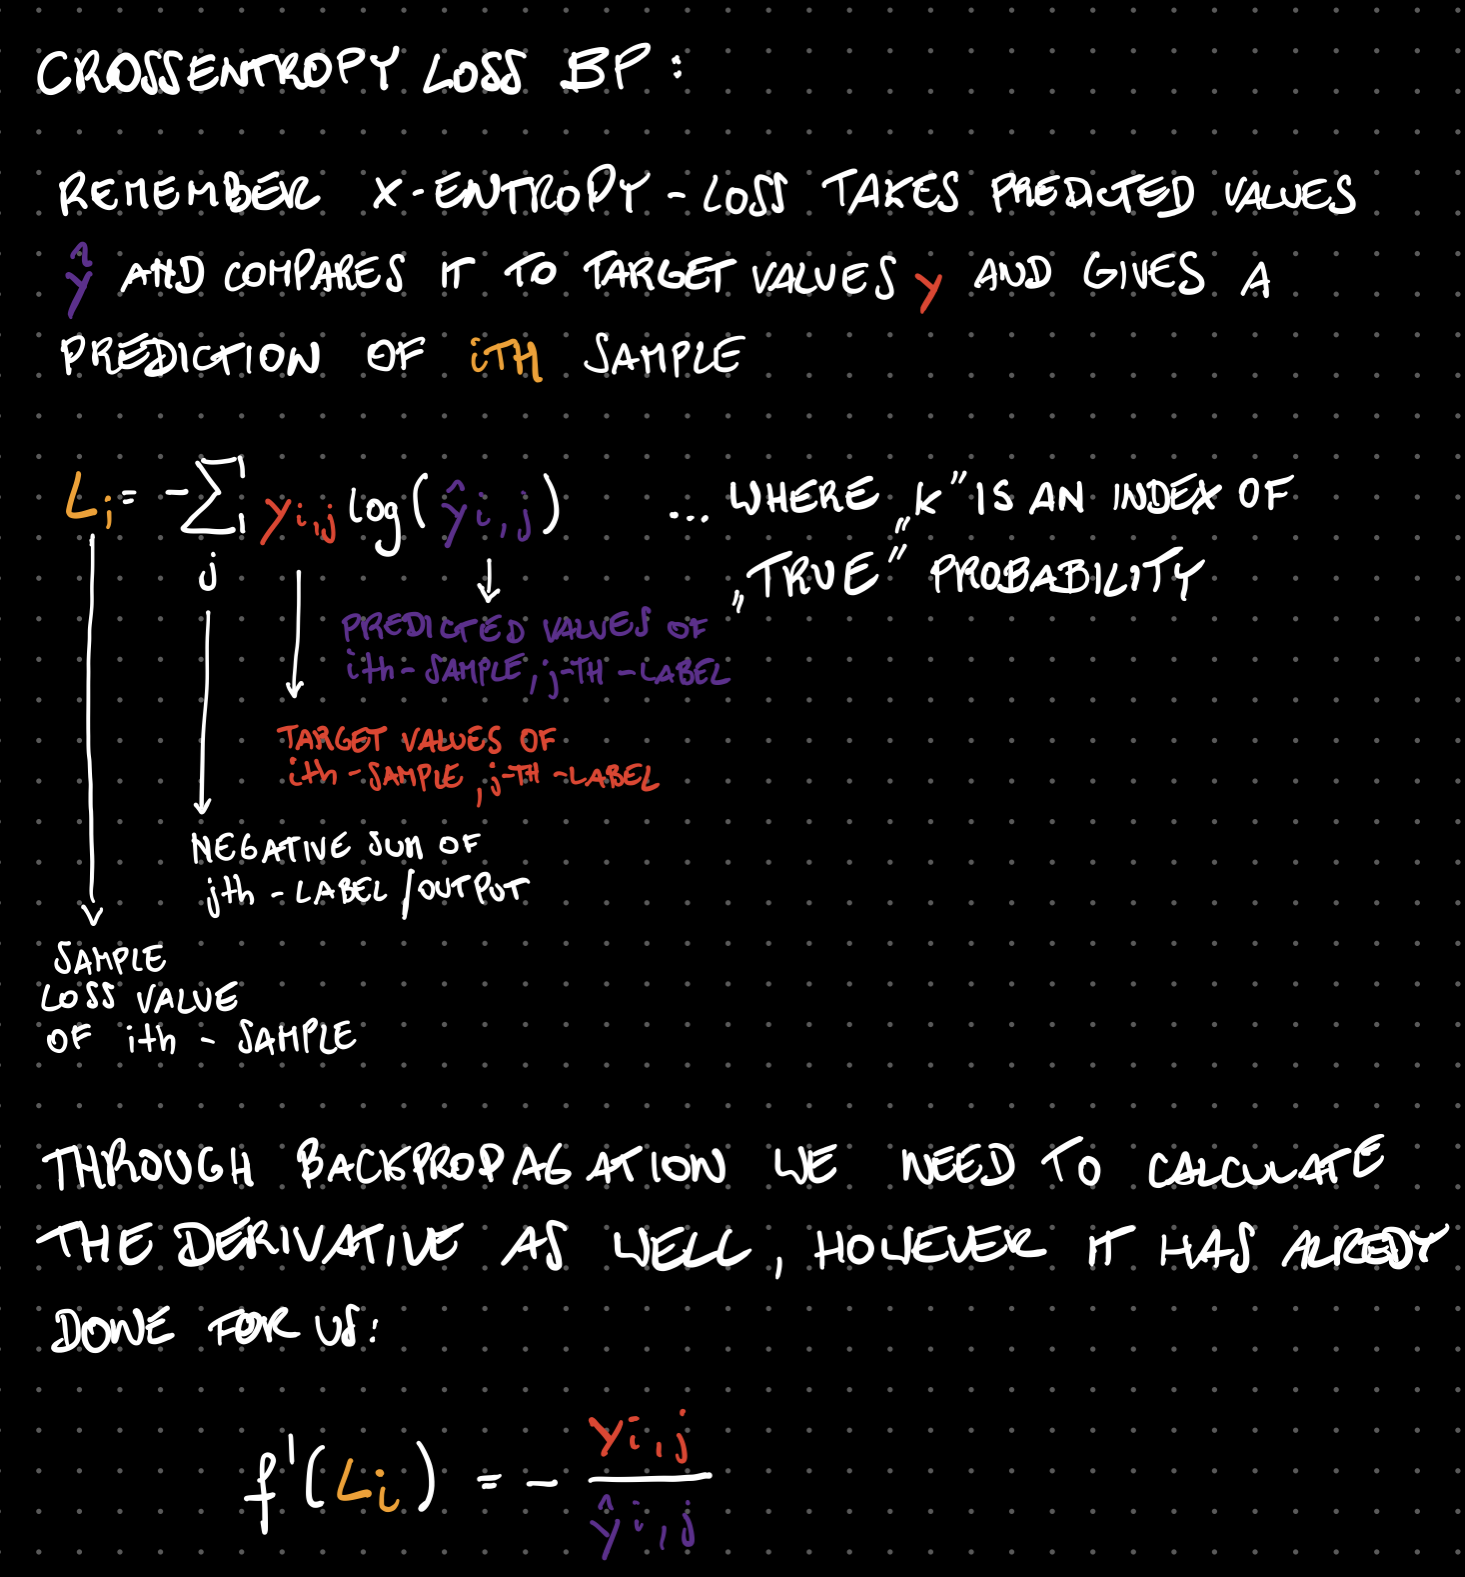 CROSSENTROPY LOSS BP:
REMEMBER X-ENTROPY-LOSS TAKES PREDICTED VALUES
ŷ AND COMPARES IT TO TARGET VALUES y AND GIVES A
PREDICTION OF iTH SAMPLE
Li = -∑j yi,j log(ŷi,j) ... WHERE „k" IS AN INDEX OF
„TRUE" PROBABILITY
PREDICTED VALUES OF
ith-SAMPLE, j-TH-LABEL
TARGET VALUES OF
ith-SAMPLE, j-TH-LABEL
NEGATIVE SUM OF
jth-LABEL/OUTPUT
SAMPLE
LOSS VALUE
OF ith-SAMPLE
THROUGH BACKPROPAGATION WE NEED TO CALCULATE
THE DERIVATIVE AS WELL, HOWEVER IT HAS ALREDY
DONE FOR US:
f'(Li) = - yi,j / ŷi,j